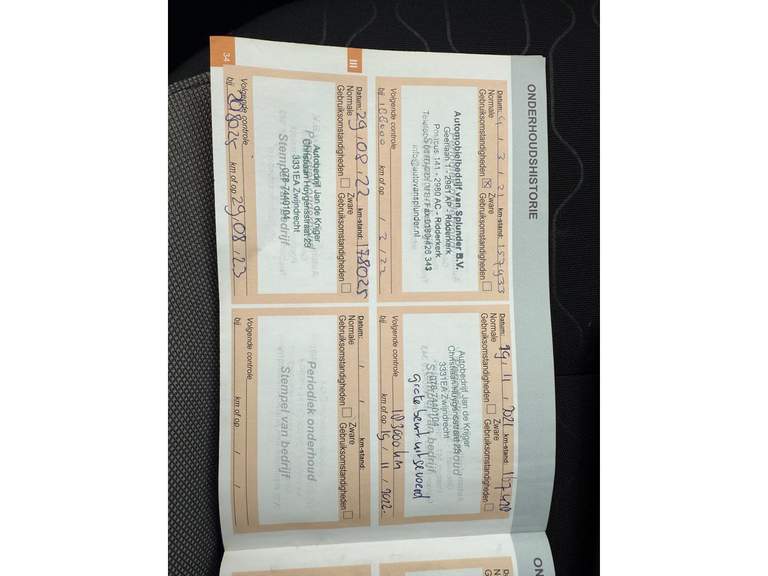 ONDERHOUDSHISTORIE
Datum: 4 / 3 / 21 km-stand: 157933
Normale Zware
Gebruiksomstandigheden ☒ Gebruiksomstandigheden ☐
Automobielbedrijf van Splunder B.V.
Geerlaan 1 - 2981 AP - Ridderkerk
Postbus 141 - 2980 AC - Ridderkerk
info@autovansplunder.nl
Volgende controle
bij km of op / 3 / 22
Datum: 19 / 11 / 2021 km-stand:
Normale Zware
Gebruiksomstandigheden ☐ Gebruiksomstandigheden ☐
Autobedrijf Jan de Krijger
Christiaan Huygensstraat 25
3331EA Zwijndrecht
078-7440104
Stempel van bedrijf
grote beurt uitgevoerd
Volgende controle
bij km of op 19 / 11 / 2022
III
Datum: 29 / 08 / 22 km-stand: 178025
Normale Zware
Gebruiksomstandigheden ☐ Gebruiksomstandigheden ☐
Autobedrijf Jan de Krijger
Christiaan Huygensstraat 25
3331EA Zwijndrecht
078-7440104
Stempel van bedrijf
Volgende controle
bij 208025 km of op 29 / 08 / 23
Datum: / / km-stand:
Normale Zware
Gebruiksomstandigheden ☐ Gebruiksomstandigheden ☐
Periodiek onderhoud
Stempel van bedrijf
Volgende controle
bij km of op / /
34
ON